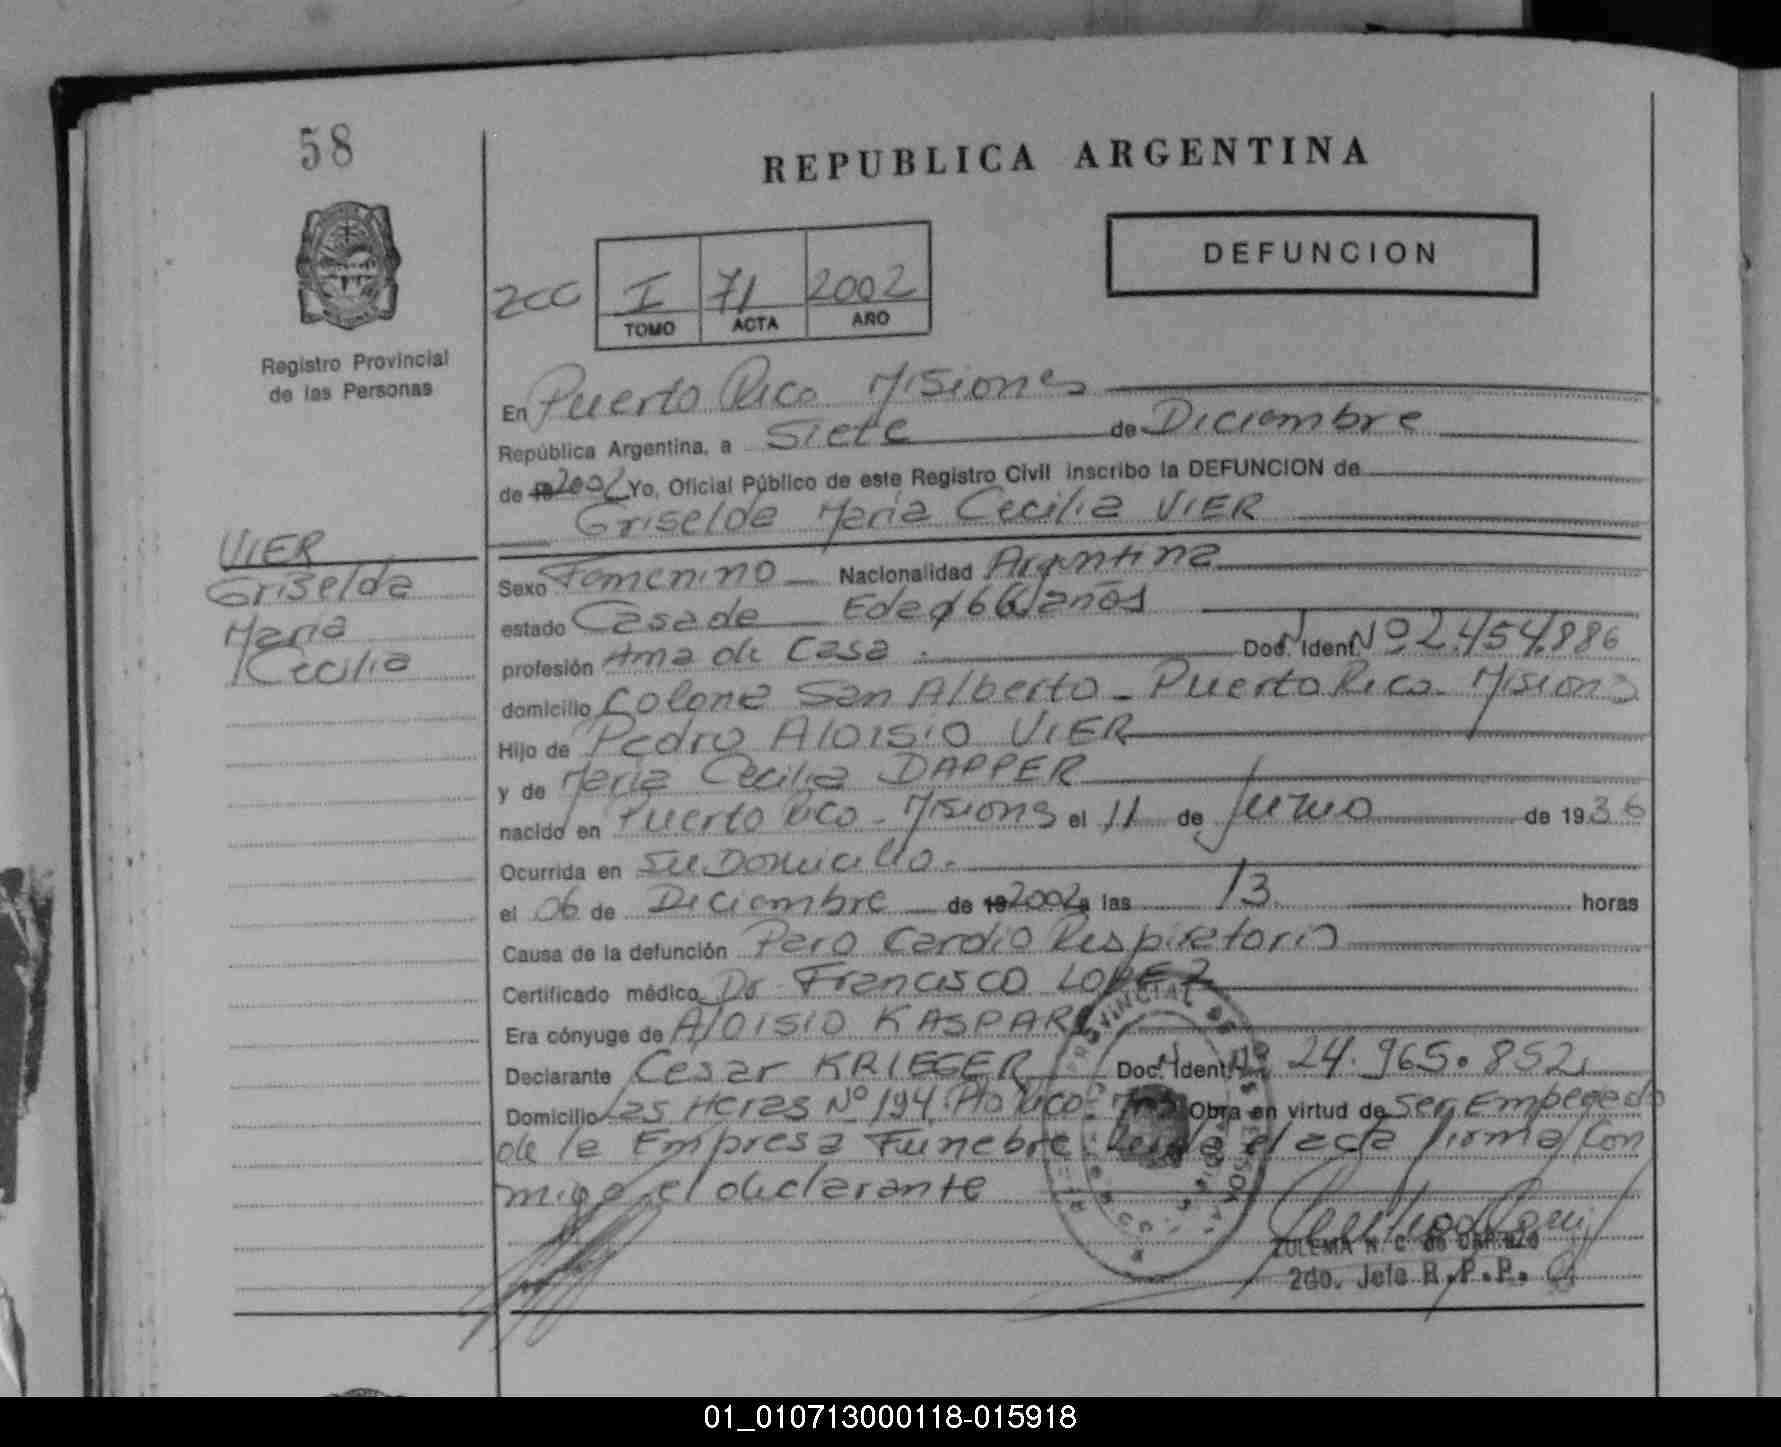 58
REPUBLICA ARGENTINA
DEFUNCION
2CC I 71 2002
TOMO ACTA AÑO
Registro Provincial
de las Personas
En Puerto Rico Misiones
República Argentina, a Siete de Diciembre
de 19 2002 Yo, Oficial Público de este Registro Civil inscribo la DEFUNCION de
Griselda Maria Cecilia VIER
VIER
Griselda
Maria
Cecilia
Sexo Femenino Nacionalidad Argentina
estado Casada Edad 66 años
profesión Ama de Casa Doc. Ident. Nº 2.454.886
domicilio Colonia San Alberto - Puerto Rico - Misiones
Hijo de Pedro Aloisio VIER
y de Maria Cecilia DAPPER
nacido en Puerto Rico - Misiones el 11 de Junio de 1936
Ocurrida en su Domicilio.
el 06 de Diciembre de 19 2002 a las 13 horas
Causa de la defunción Paro Cardio Respiratorio
Certificado médico Dr. Francisco LOPEZ
Era cónyuge de Aloisio KASPARI
Declarante Cesar KRIEGER Doc. Ident. Nº 24.965.852
Domicilio Las Heras Nº 194. Pto Rico - Obra en virtud de ser Empleado
de la Empresa Funebre. Leida el acta firma con
migo el declarante
ZULEMA N. C. de
2do. Jefe R.P.P.
01_010713000118-015918